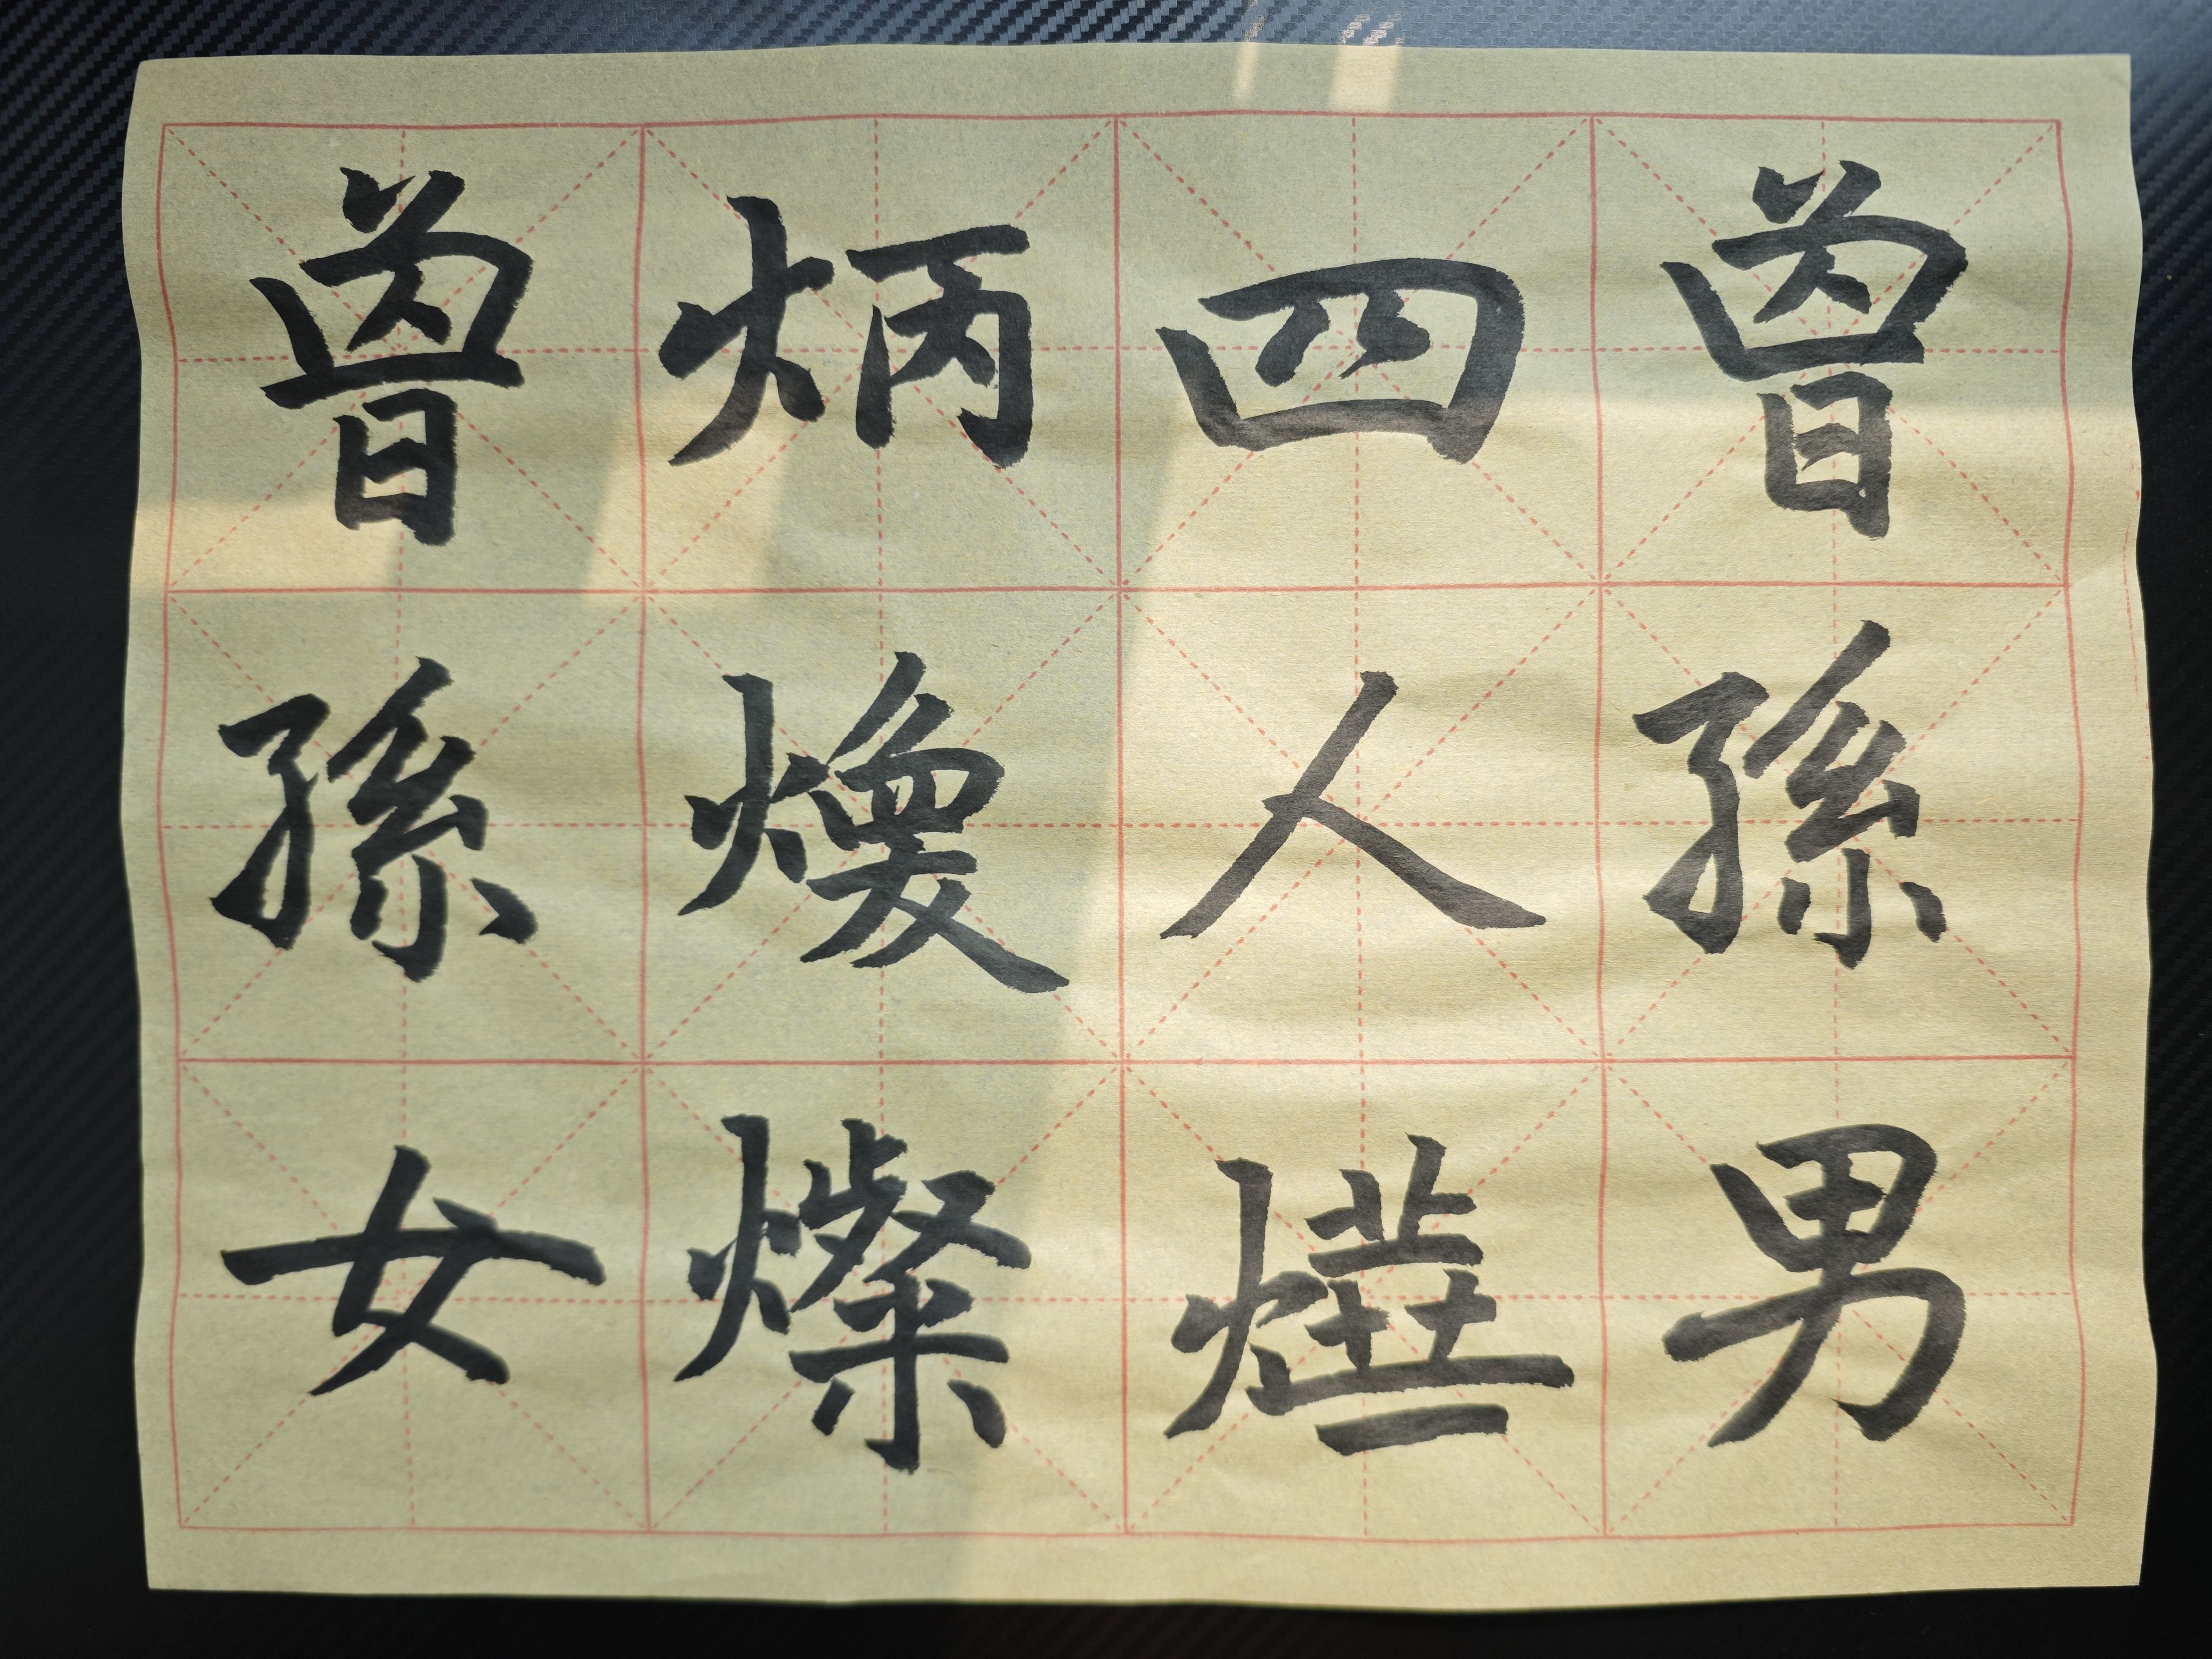 曾孫男
四人燁
炳煥燦
曾孫女